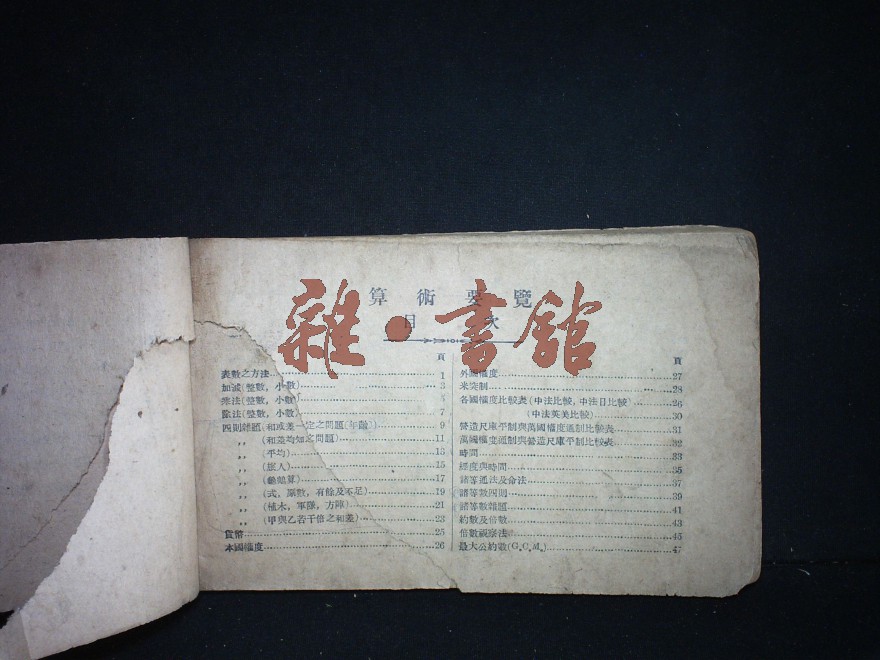 算術要覽
目次
雜·書館
頁
表數之方法 1
加減(整數,小數) 3
乘法(整數,小數) 5
除法(整數,小數) 7
四則雜題(和或差一定之問題(年齡)) 9
,, (和差均知之問題) 11
,, (平均) 13
,, (旅人) 15
,, (龜鶴算) 17
,, (式,單數,有餘及不足) 19
,, (植木,軍隊,方陣) 21
,, (甲與乙若干倍之和差) 23
貨幣 25
本國權度 26
頁
外國權度 27
米突制 28
各國權度比較表(中法比較,中法日比較) 26
(中法英美比較) 30
營造尺庫平制與萬國權度通制比較表 31
萬國權度通制與營造尺庫平制比較表 32
時間 33
經度與時間 35
諸等通法及命法 37
諸等數四則 39
諸等數雜題 41
約數及倍數 43
倍數視察法 45
最大公約數(G.C.M.) 47